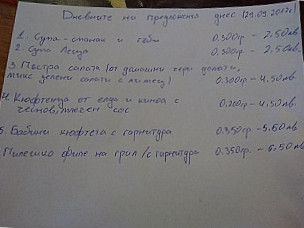 Дневните ни предложения днес (29.09.2017г)
1. Супа - спанак и 0.300гр - 2.50лв
2. Супа Леща 0.300гр - 2.50лв.
3. Пъстра салата (от домашни чери домати,
микс зелени салати с кълнец) 0.300гр - 4.50лв
4. Кюфтенца от елда и киноа с
чеснов, млечен сос 0.200гр - 4.50лв.
5. Бабини кюфтета с гарнитура 0.350гр - 5.50лв
Пилешко филе на грил /с гарнитура 0.350гр. - 6.50лв